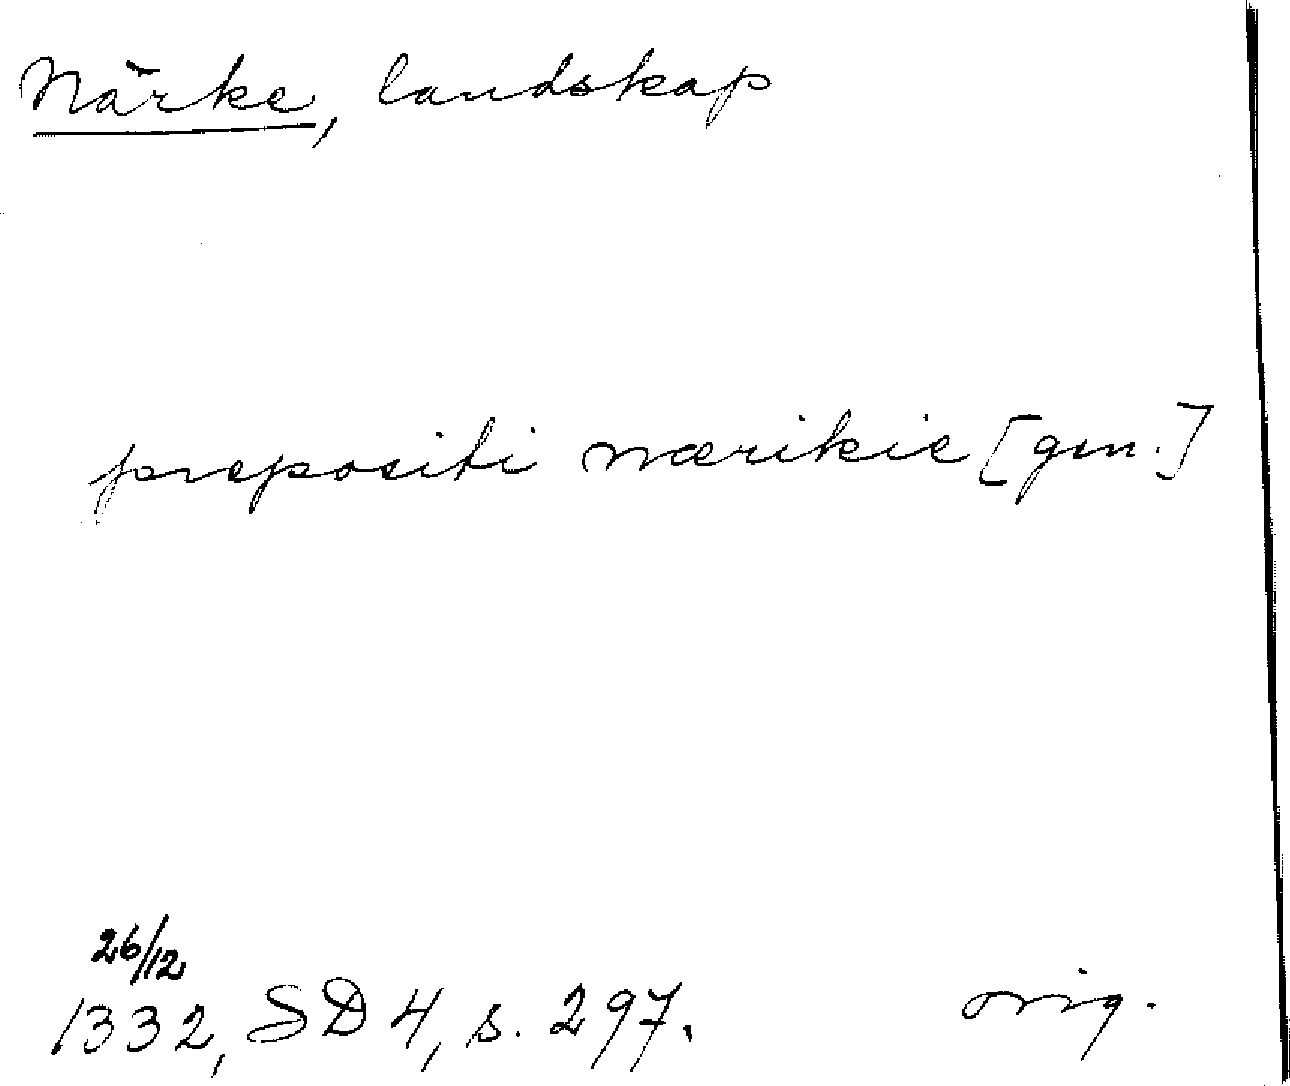 Närke, landskap
prepositi nærikie [gen.]
26/12
1332, SD 4, s. 297. orig.